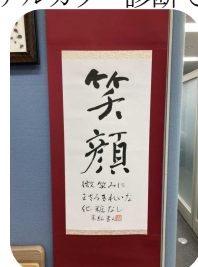 カラー診断で
笑顔
微笑みに
まさるきれいな
化粧なし